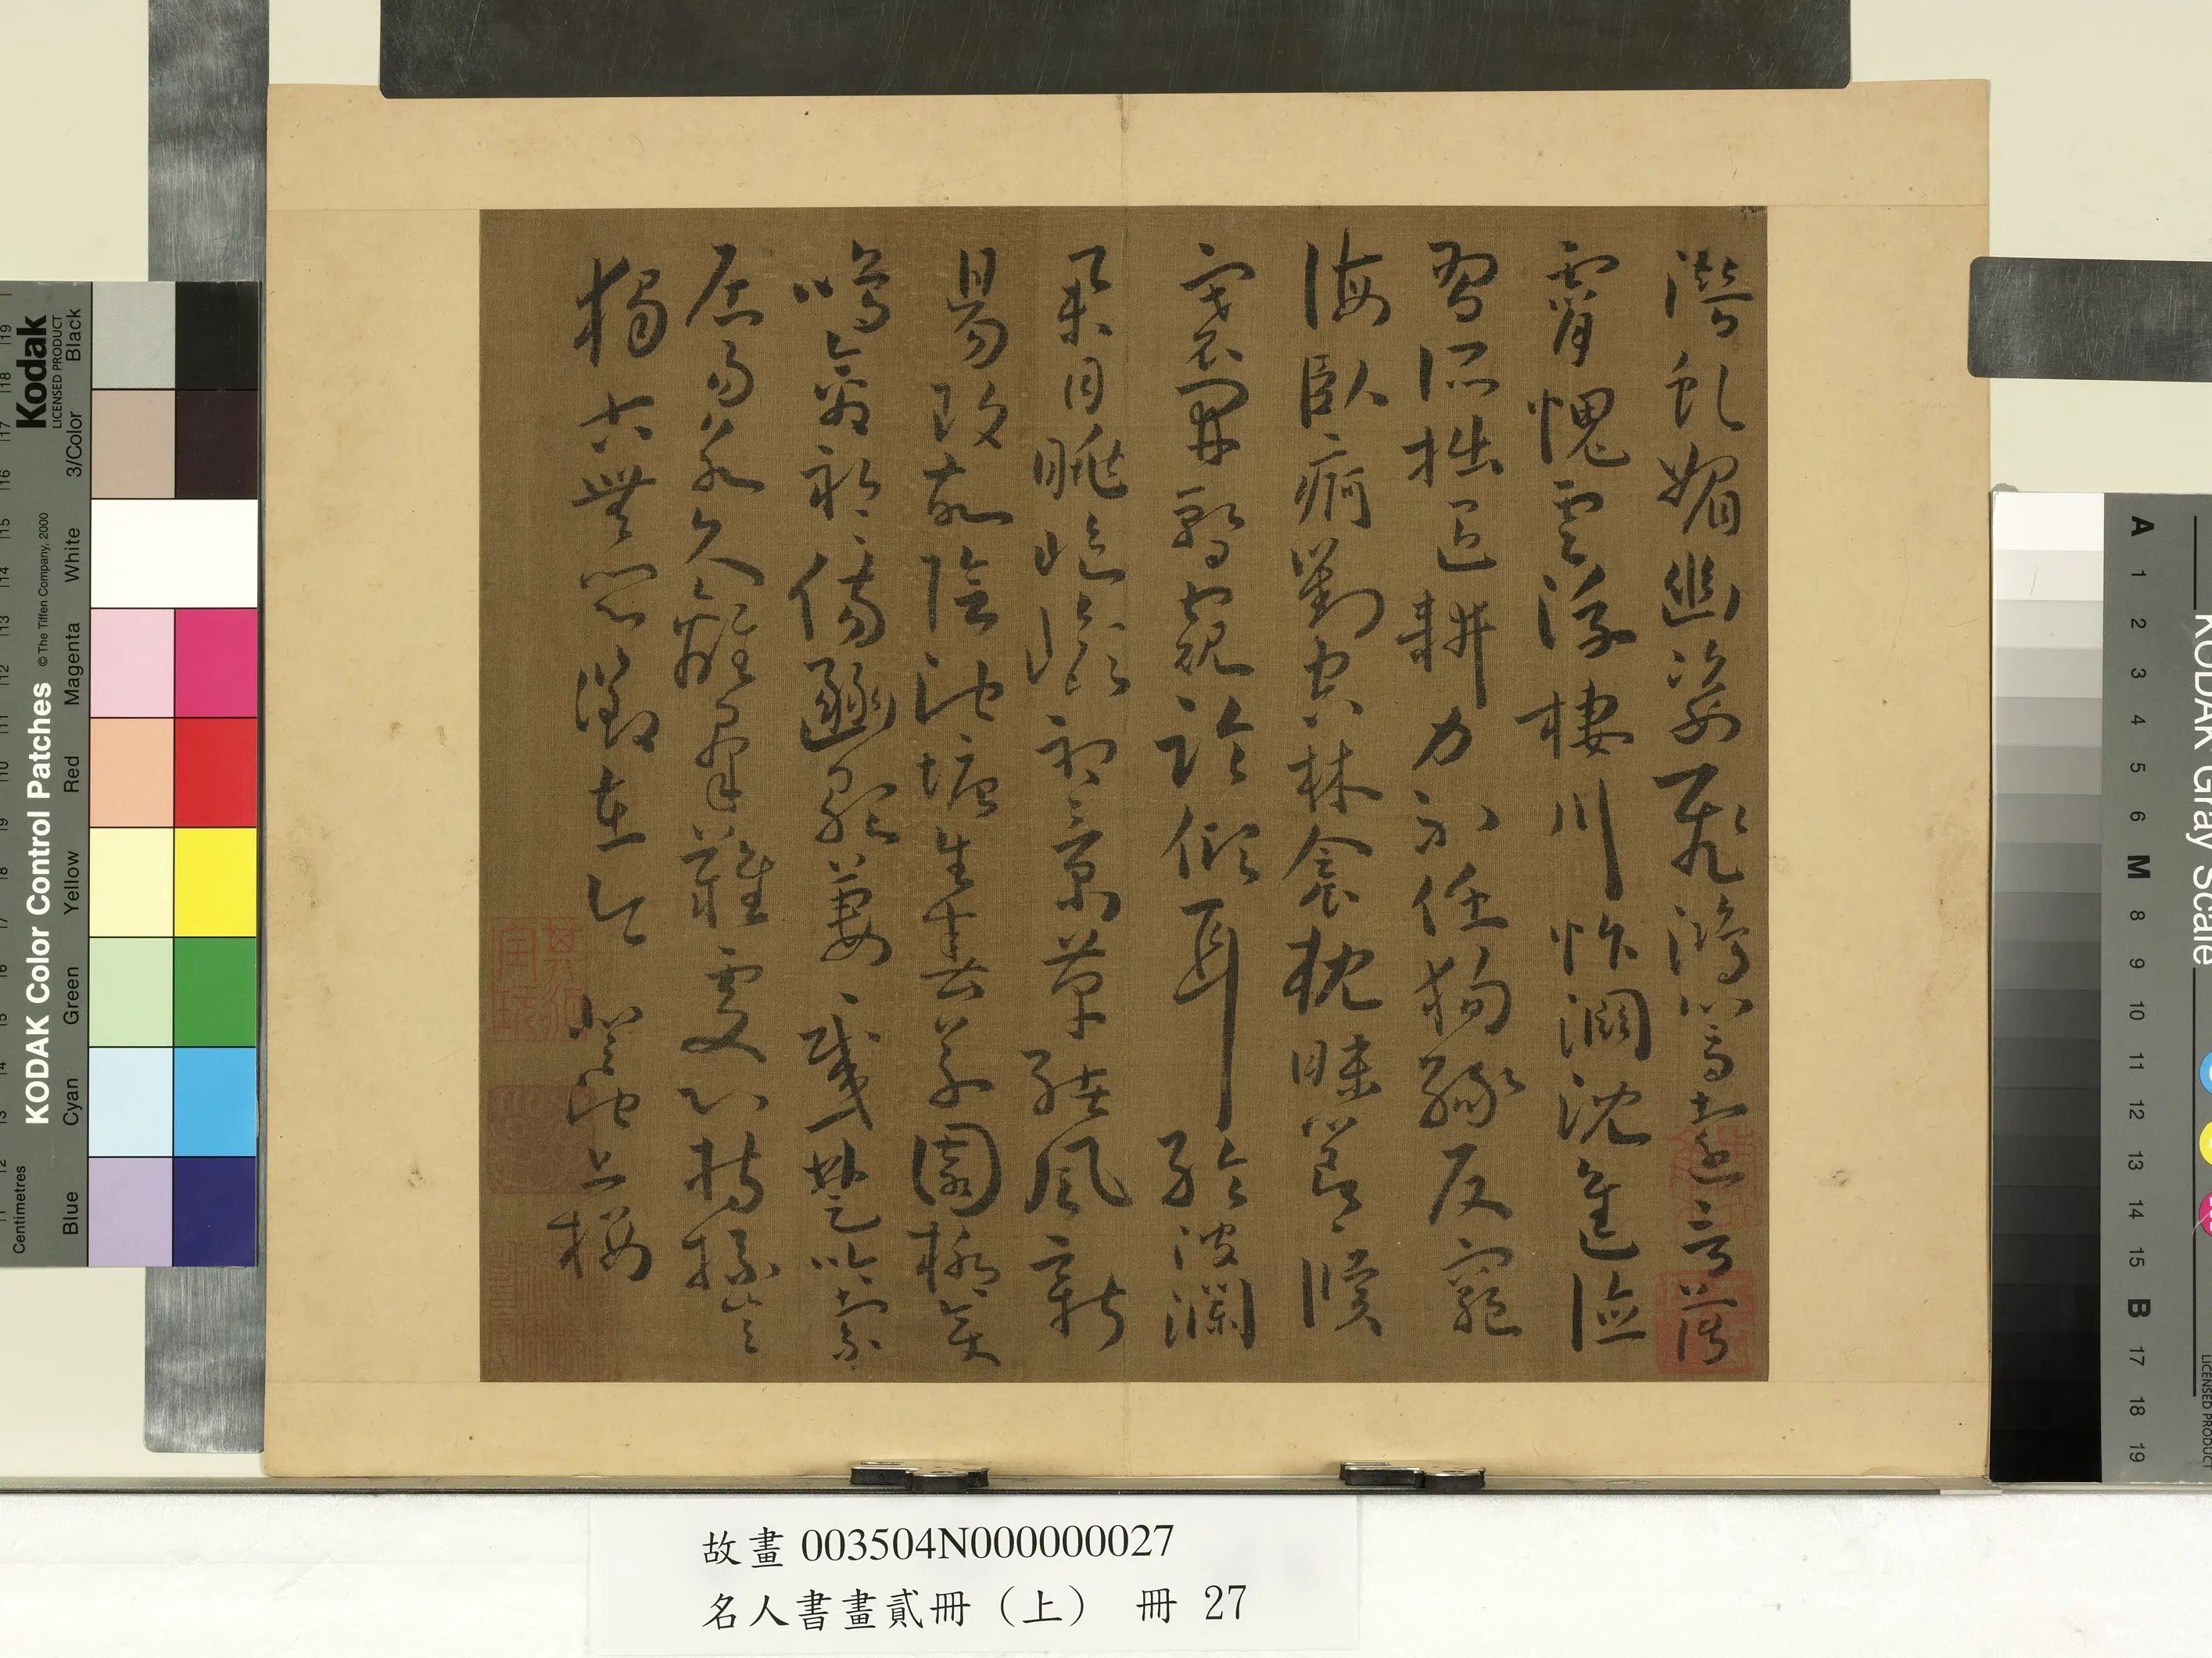 潛虬媚幽姿飛鴻響遠音薄
霄愧雲浮棲川怍淵沈進德
智所拙退耕力不任徇祿反窮
海臥痾對空林衾枕昧節候
褰開暫窺臨傾耳聆波瀾
舉目眺嶇嶔初景革緒風新
陽改故陰池塘生春草園柳變
鳴禽祁祁傷豳歌萋萋感楚吟索
居易永久離羣難處心持操豈
獨古無悶徵在今 登池上樓
故畫 003504N000000027
名人書畫貳冊（上） 冊 27
Kodak
LICENSED PRODUCT
KODAK Color Control Patches
© The Tiffen Company, 2000
Centimetres
Blue Cyan Green Yellow Red Magenta White 3/Color Black
KODAK Gray Scale
LICENSED PRODUCT
A 1 2 3 4 5 6 M 8 9 10 11 12 13 14 15 B 17 18 19